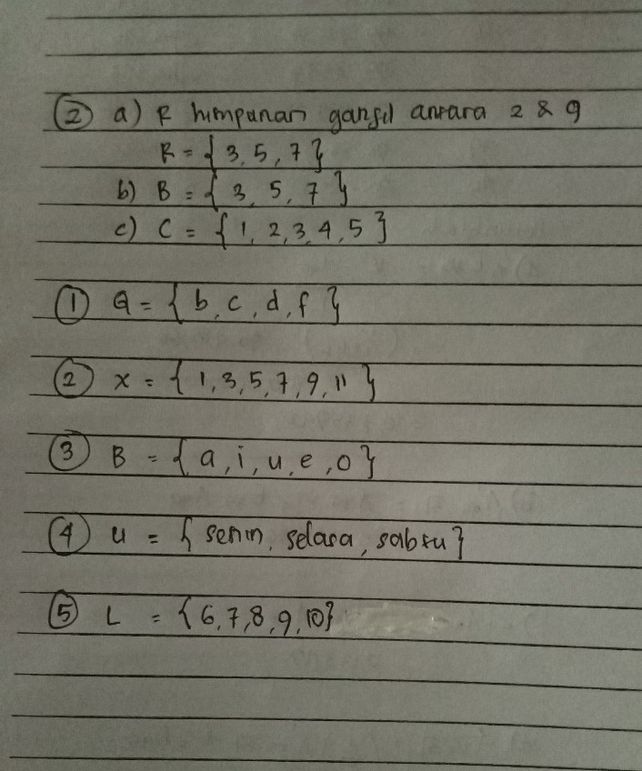 ② a) R himpunan ganjil antara 2 & 9
R = { 3, 5, 7 }
b) B = { 3, 5, 7 }
c) C = { 1, 2, 3, 4, 5 }
① Q = { b, c, d, f }
② x = { 1, 3, 5, 7, 9, 11 }
③ B = { a, i, u, e, o }
④ u = { senin, selasa, sabtu }
⑤ L = { 6, 7, 8, 9, 10 }